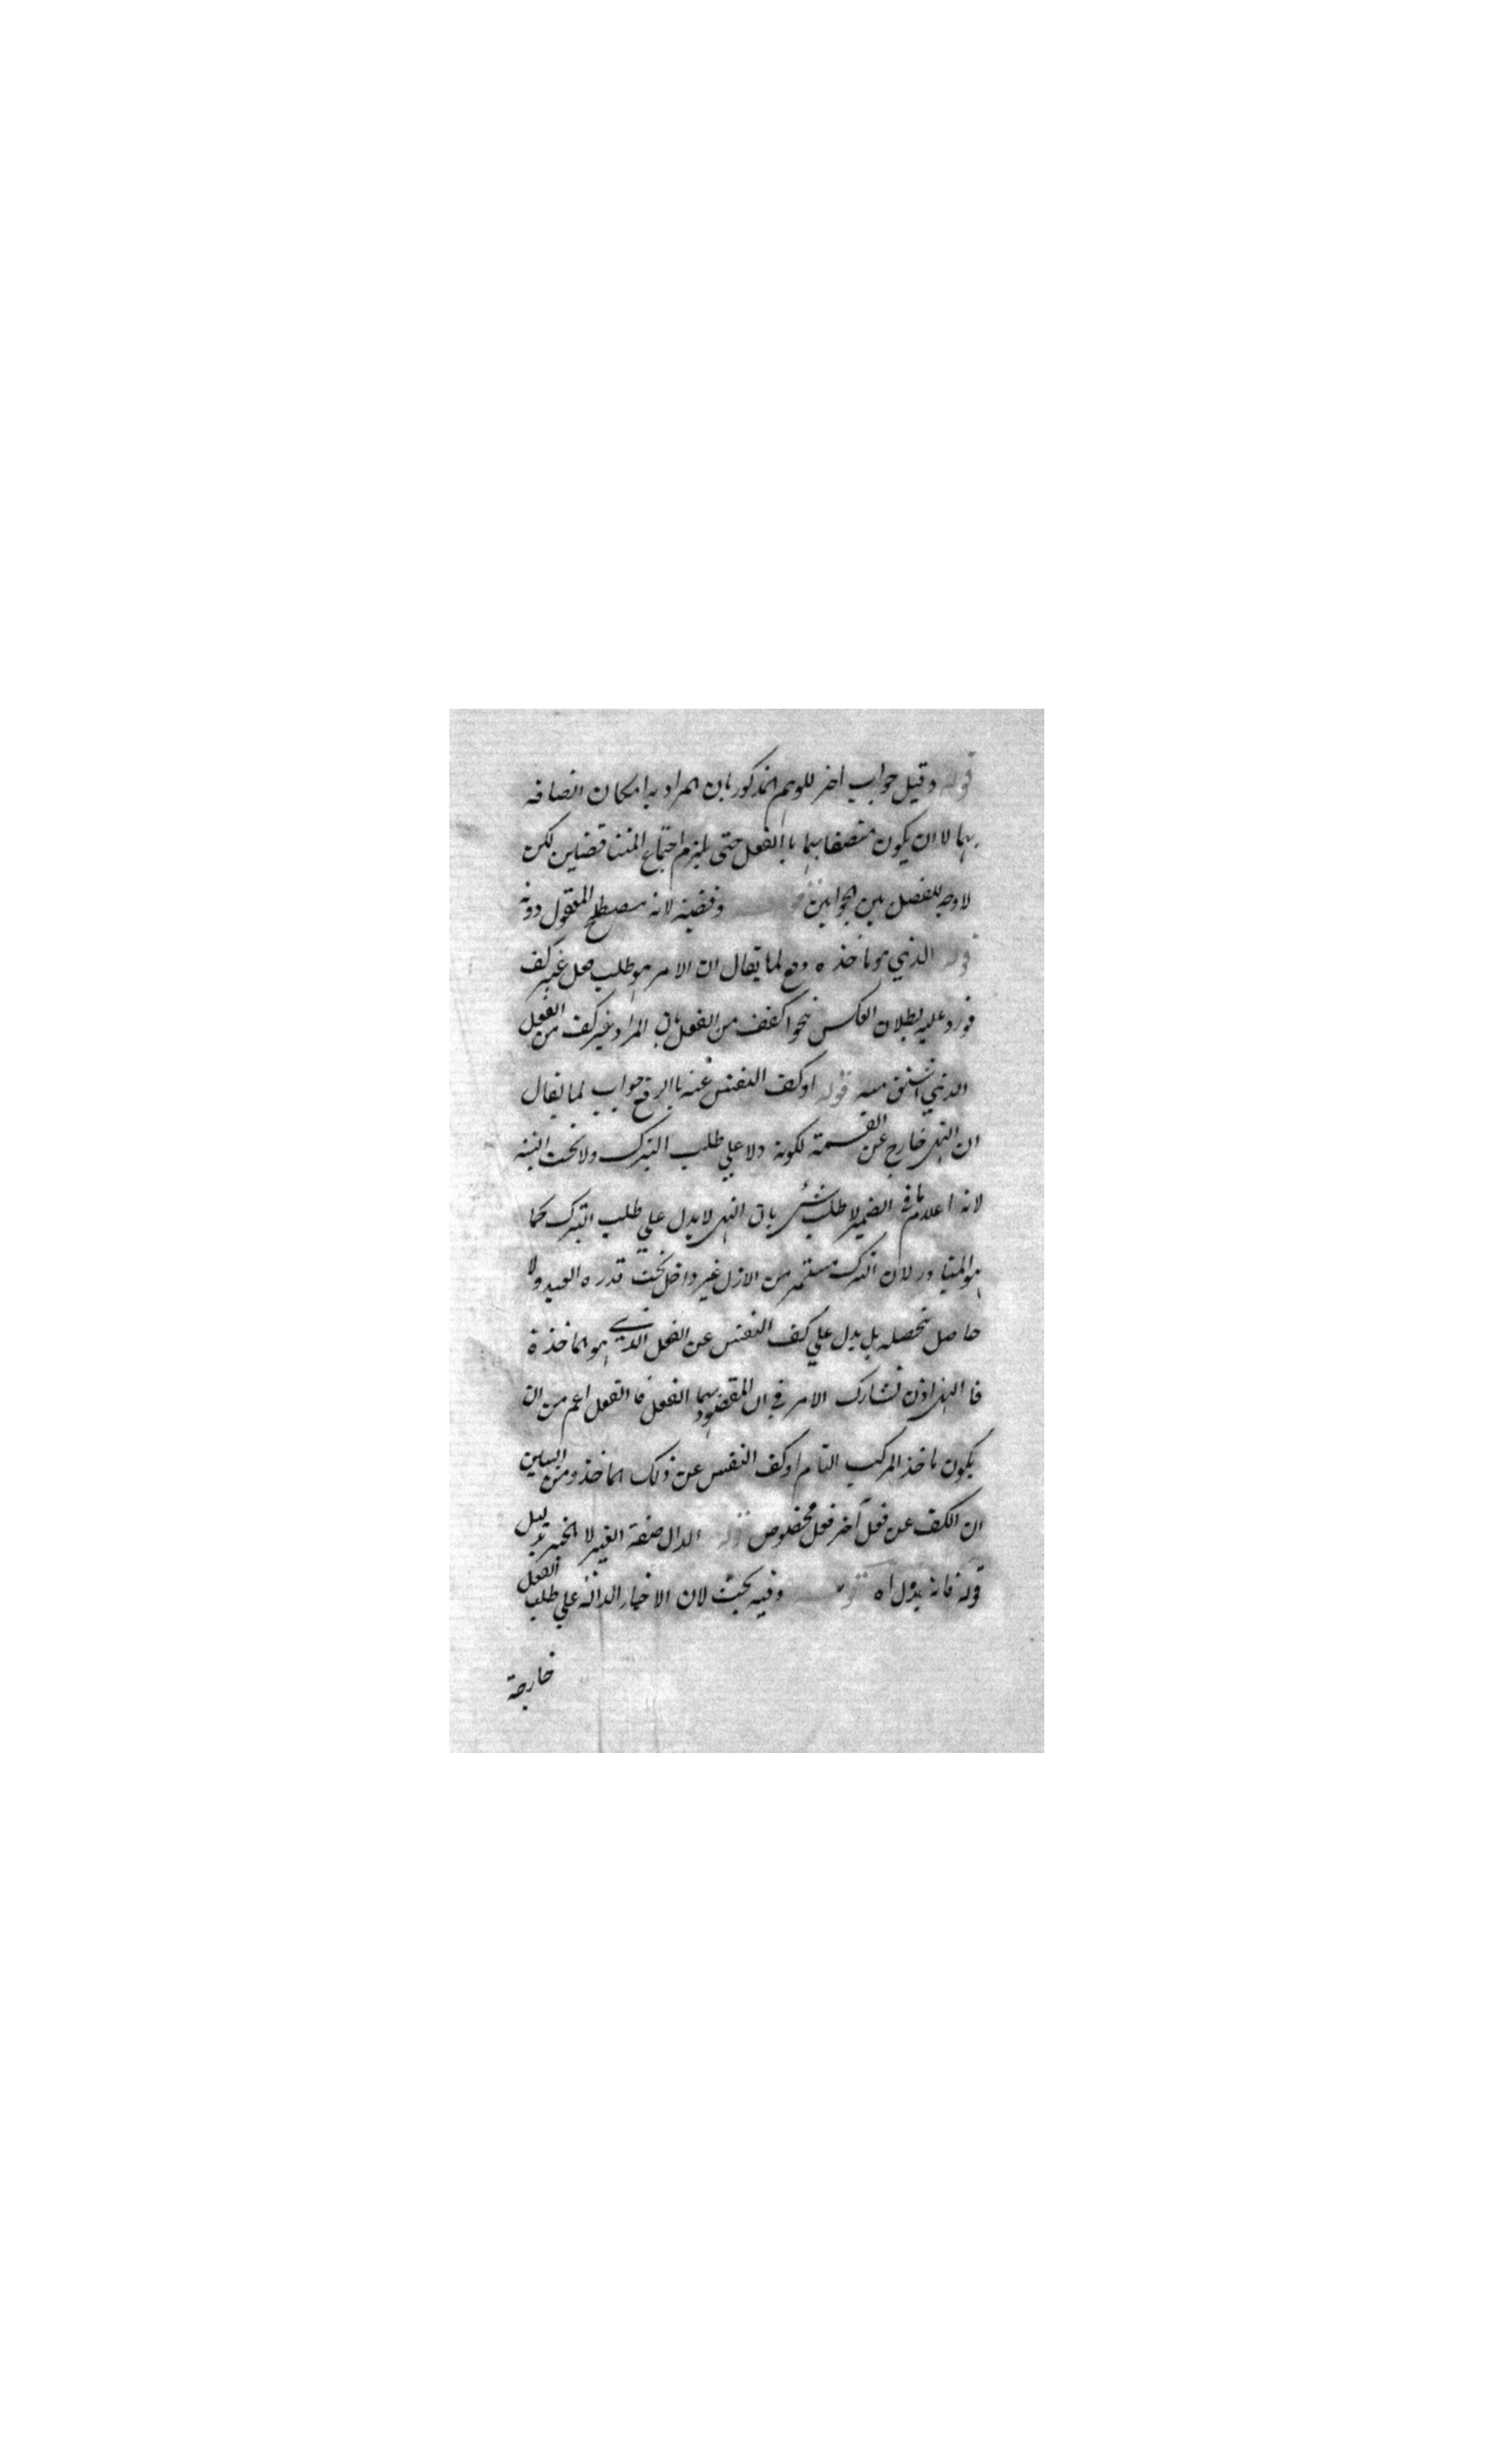 قوله وقيل جواب اخر للوهم المذكور بان المراد به امكان اتصافه
بهما لا ان يكون متصفا بهما باالفعل حتى يلزم اجتماع المتناقضين لكن
لا وجه للفصل بين الجوابين وقضية لانه مصطلح المعقول دونه
قوله الذي هو ماخذه دفع لما يقال ان الامر هو طلب فعل غير كف
فورد عليه بطلان العكس بنحو اكفف من الفعل بان المراد غير كف من الفعل
الذي اشتق منه قوله او كف النفس عنه باالرفع جواب لما يقال
ان النهي خارج عن القسمة لكونه دالا علي طلب الترك ولا تحت التنبيه
لانه اعلام ما في الضمير لا طلب شئ بان النهي لا يدل علي طلب الترك كما
هو المتبادر لان الترك مستمر من الازل غير داخل تحت قدره العبد ولا
حاصل بتحصله بل يدل علي كف النفس عن الفعل الذي هو ماخذه
فا النهي اذن تشارك الامر في ان المقصود بهما الفعل فا الفعل اعم من ان
يكون ماخذ المركب التام او كف النفس عن ذلك الماخذ ومن البين
ان الكف عن فعل آخر فعل مخصوص قوله الدال صفة الغير لا الخبر بدليل
قوله فانه يدل اه قوله وفيه بحث لان الاخبار الدالة علي طلب الفعل
خارجة